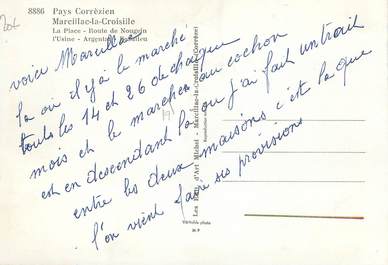 8886 Pays Corrèzien
Marcillac-la-Croisille
La Place - Route de Nougein
l'Usine - Argentat
voici Marcillac
la ou il y à le marché
touts les 14 et 26 de chaque
mois et le marcher au cochon
est en descendant la ou j'ai fait un trait
entre les deux maisons c'est la que
l'on vient faire ses provisions
Les Editions d'Art Michel - Marcillac-la-Croisille (Corrèze)
Véritable photo